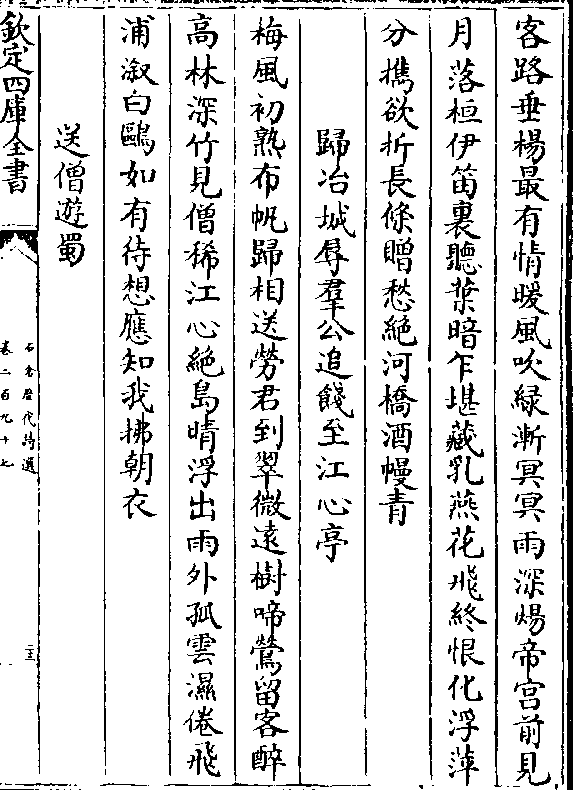 客路垂楊最有情暖風吹緑漸冥冥雨深煬帝宫前見
月落桓伊笛裏聽葉暗乍堪藏乳燕花飛終恨化浮萍
分擕欲折長條贈愁絶河橋酒幔青
歸冶城辱羣公追餞至江心亭
梅風初熟布帆歸相送勞君到翠微遠樹啼鶯留客醉
高林深竹見僧稀江心絶島晴浮出雨外孤雲濕倦飛
浦溆白鷗如有待想應知我拂朝衣
送僧遊蜀
欽定四庫全書
石倉歷代詩選
卷二百九十七
二十三